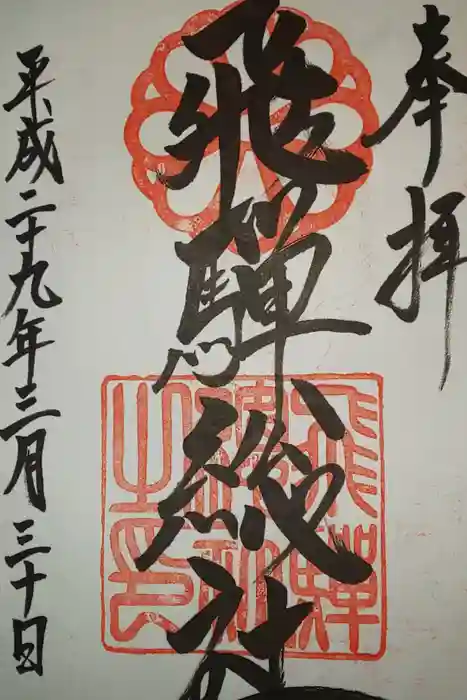 奉拝
飛騨総社
平成二十九年三月三十日
飛騨
總社
之印